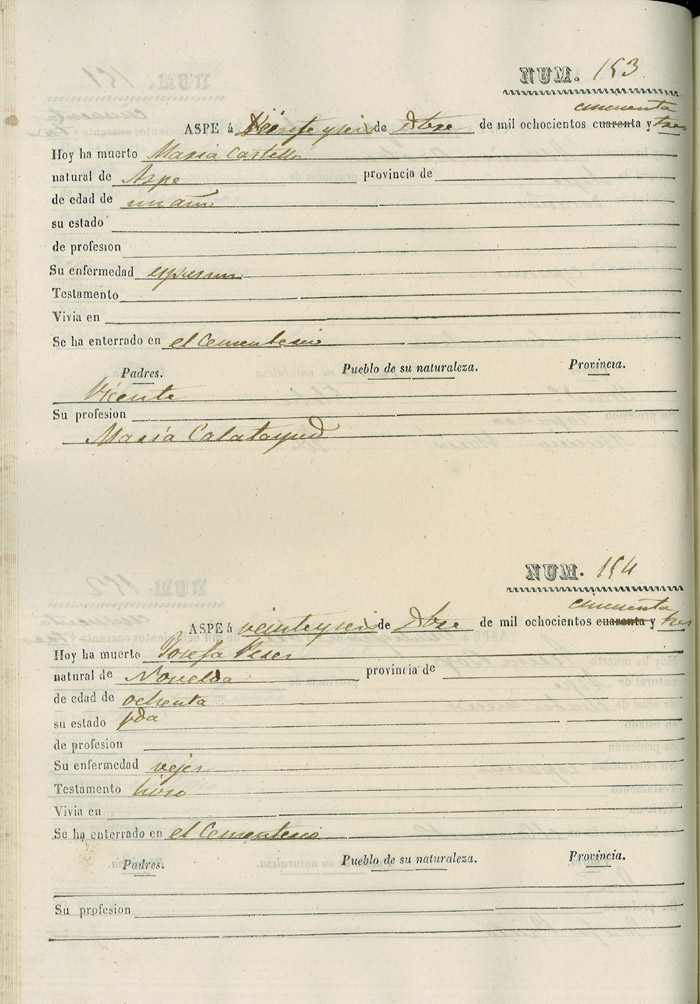 NUM. 153
cincuenta
ASPE á Veinte y seis de Dbre de mil ochocientos cuarenta y tres
Hoy ha muerto Maria Castello
natural de Aspe provincia de
de edad de un año
su estado
de profesion
Su enfermedad espasmo
Testamento
Vivia en
Se ha enterrado en el Cementerio
Padres. Pueblo de su naturaleza. Provincia.
Vicente
Su profesion
Maria Calatayud
NUM. 154
cincuenta
ASPE á veinte y seis de Dbre de mil ochocientos cuarenta y tres
Hoy ha muerto Josefa
natural de Novelda provincia de
de edad de ochenta
su estado
de profesion
Su enfermedad vejes
Testamento hiso
Vivia en
Se ha enterrado en el Cementerio
Padres. Pueblo de su naturaleza. Provincia.
Su profesion